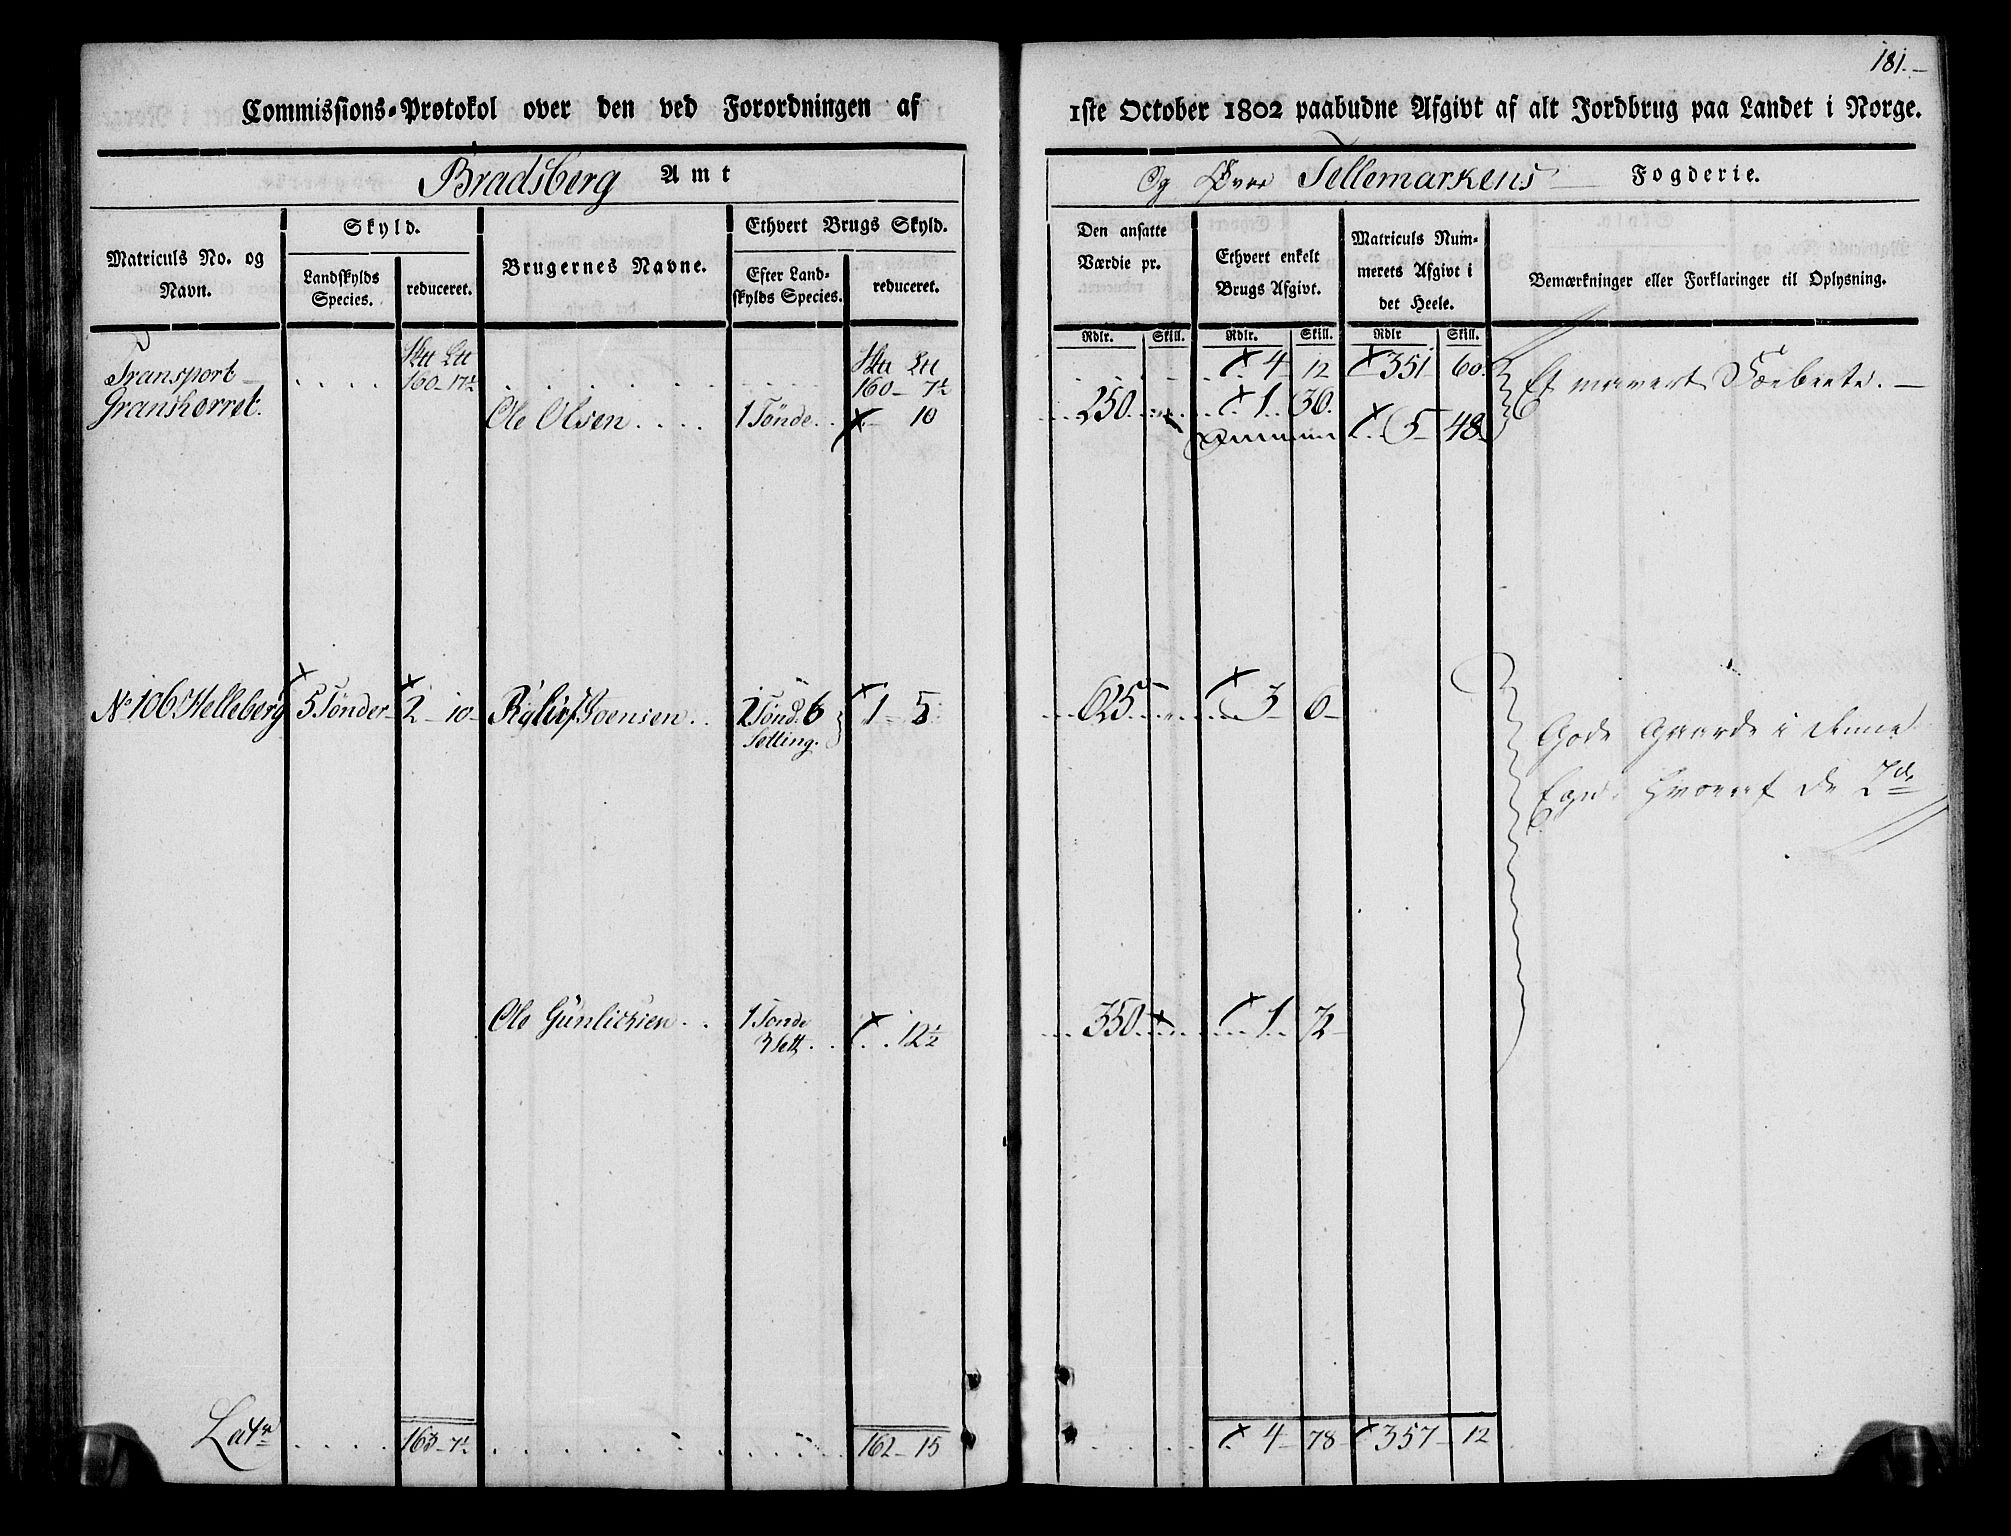 181.
Commissions-Protokol over den ved Forordningen af 1ste October 1802 paabudne Afgivt af alt Jordbrug paa Landet i Norge.
Bradsberg Amt Og Øvre Tellemarkens Fogderie.
Matriculs No. og Navn.
Skyld.
Landskylds Species.
reduceret.
Brugernes Navne.
Ethvert Brugs Skyld.
Efter Landskylds Species.
reduceret.
Den ansatte Værdie pr.
Rdlr. Skill.
Ethvert enkelt Brugs Afgivt.
Rdlr. Skill.
Matriculs Nummerets Afgivt i det Heele.
Rdlr Skill.
Bemærkninger eller Forklaringer til Oplysning.
Transport 160 - 17½ 160 - 7½ 4 12 351 60
Granskerret. Ole Olsen 1 Tönde 10 250 1 36. 5 48
No 106 Helleberg 5 Tönder 2 - 10 Joensen 2 Tönd. 6 Setting. 1 - 5 625 3 0
Gode Gaarde i denne
Egn. hvoraf de 2de
Ole Gunlicksen 1 Tönde 3 Sett 12½ 350 1 72
Latr 163 - 7½ 162 - 15 4 78 357 12